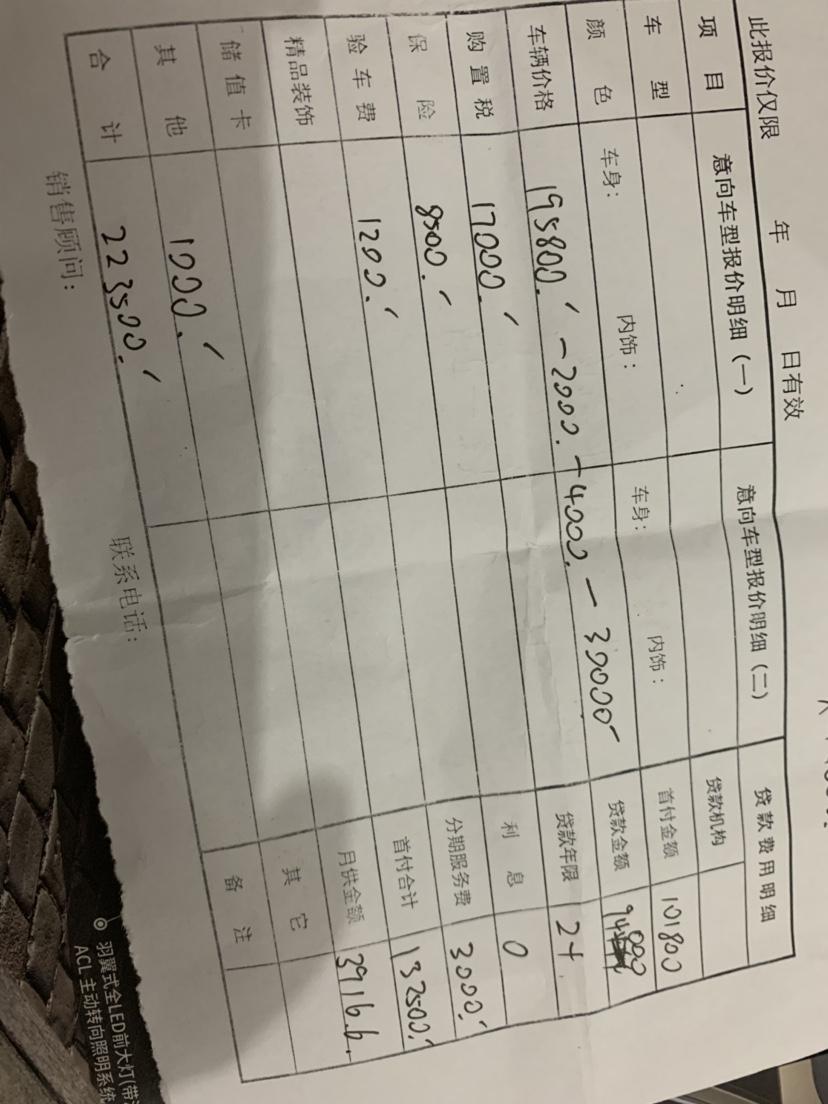 此报价仅限 年 月 日有效
项 目 意向车型报价明细（一） 意向车型报价明细（二） 贷款费用明细
车 型 贷款机构
颜 色 车身： 内饰： 车身： 内饰： 首付金额 101800
车辆价格 195800. -2000. -4000. - 30000 贷款金额
购 置 税 17000. 贷款年限 24
保 险 8500. 利 息 0
验 车 费 1200. 分期服务费 3000.
精品装饰 首付合计 132500.
储 值 卡 月供金额 3916.6.
其 他 1000. 其 它
合 计 223500. 备 注
销售顾问： 联系电话：
羽翼式全LED前大灯(带
ACL 主动转向照明系统